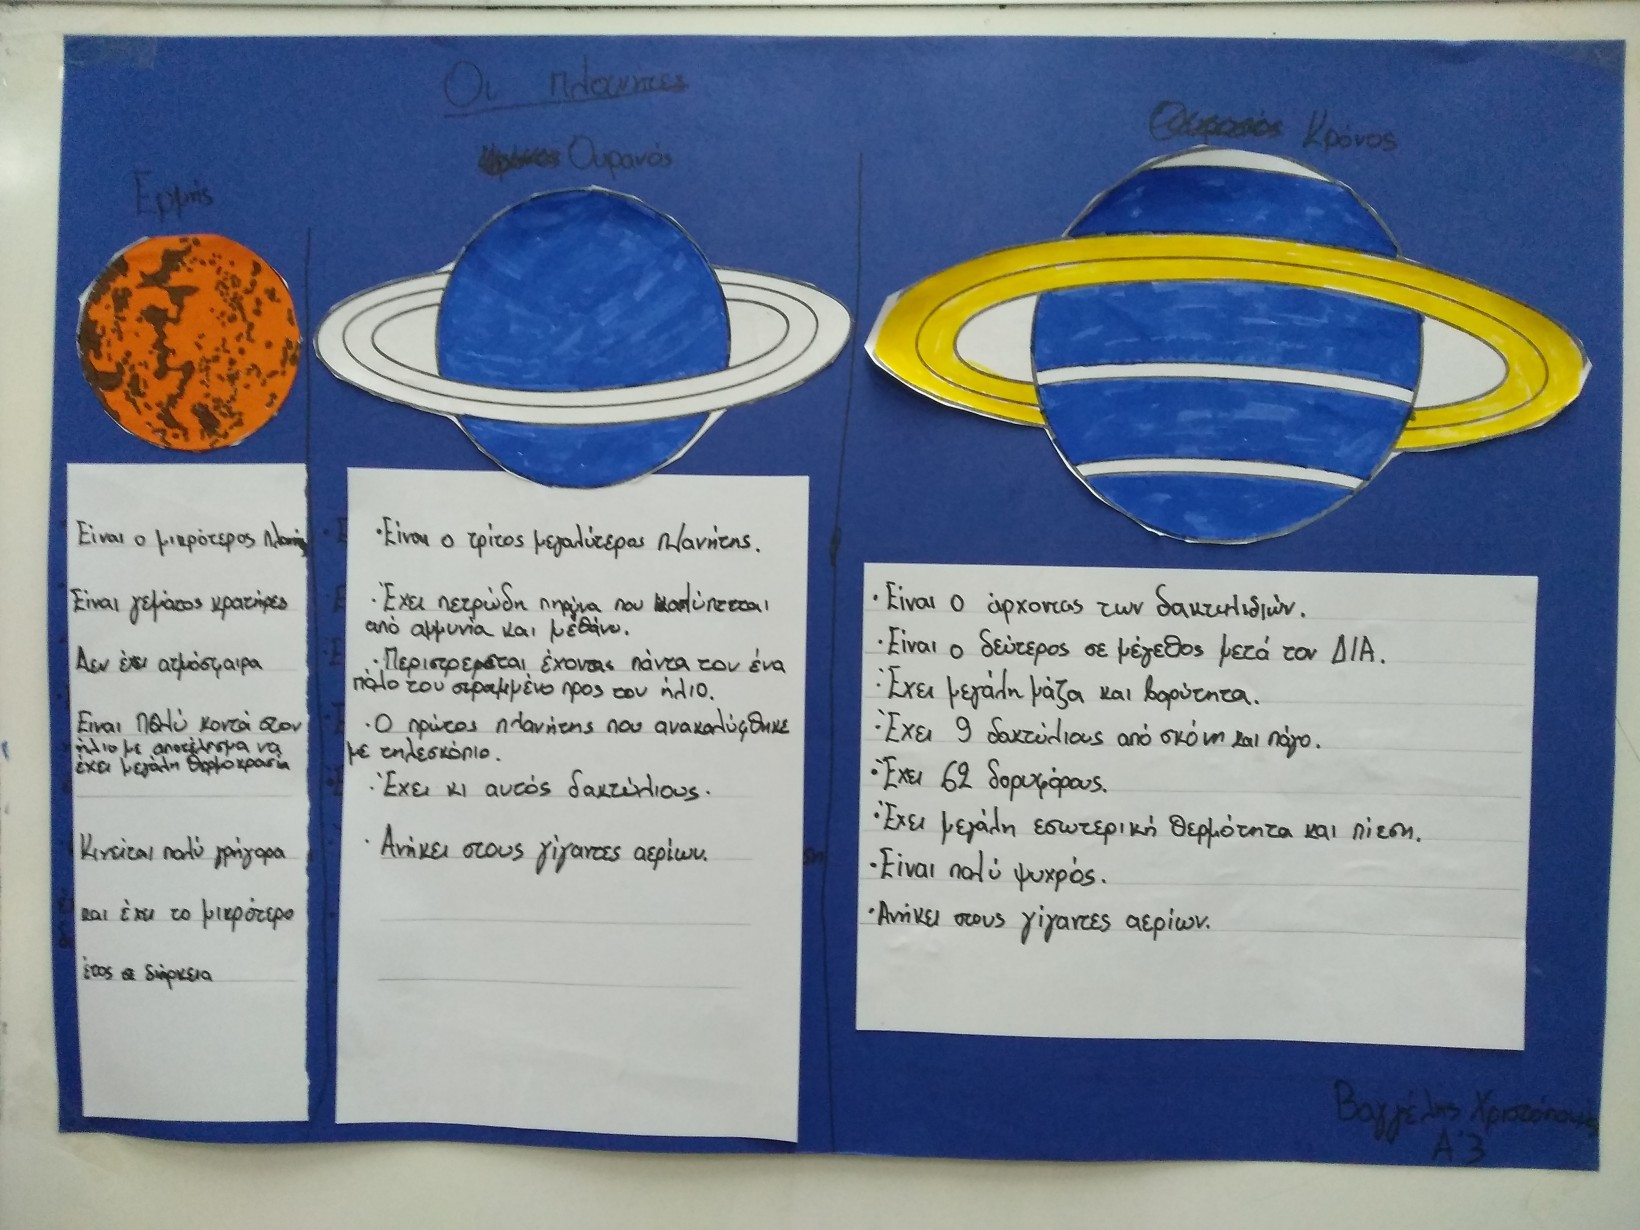 Οι πλανητες
Ερμής
Είναι ο μικρότερος
Είναι γεμάτος κρατήρες
Δεν έχει ατμόσφαιρα
Είναι πολύ κοντά στον
ήλιο με αποτέλεσμα να
έχει μεγάλη θερμοκρασία
Κινείται πολύ γρήγορα
και έχει το μικρότερο
έτος σε διάρκεια
Κρόνος Ουρανός
· Είναι ο τρίτος μεγαλύτερος πλανήτης.
· Έχει πετρώδη πηρήνα που καλύπτεται
από αμμωνία και μεθάνιο.
· Περιστρέφεται έχοντας πάντα τον ένα
πόλο του στραμμένο προς τον ήλιο.
· Ο πρώτος πλανήτης που ανακαλύφθηκε
με τηλεσκόπιο.
· Έχει κι αυτός δακτύλιους.
· Ανήκει στους γίγαντες αερίων.
Ουρανός Κρόνος
· Είναι ο άρχοντας των δακτυλιδιών.
· Είναι ο δεύτερος σε μέγεθος μετά τον ΔΙΑ.
· Έχει μεγάλη μάζα και βαρύτητα.
· Έχει 9 δακτύλιους από σκόνη και πάγο.
· Έχει 62 δορυφόρους.
· Έχει μεγάλη εσωτερική θερμότητα και πίεση.
· Είναι πολύ ψυχρός.
· Ανήκει στους γίγαντες αερίων.
Βαγγέλης
Α'3